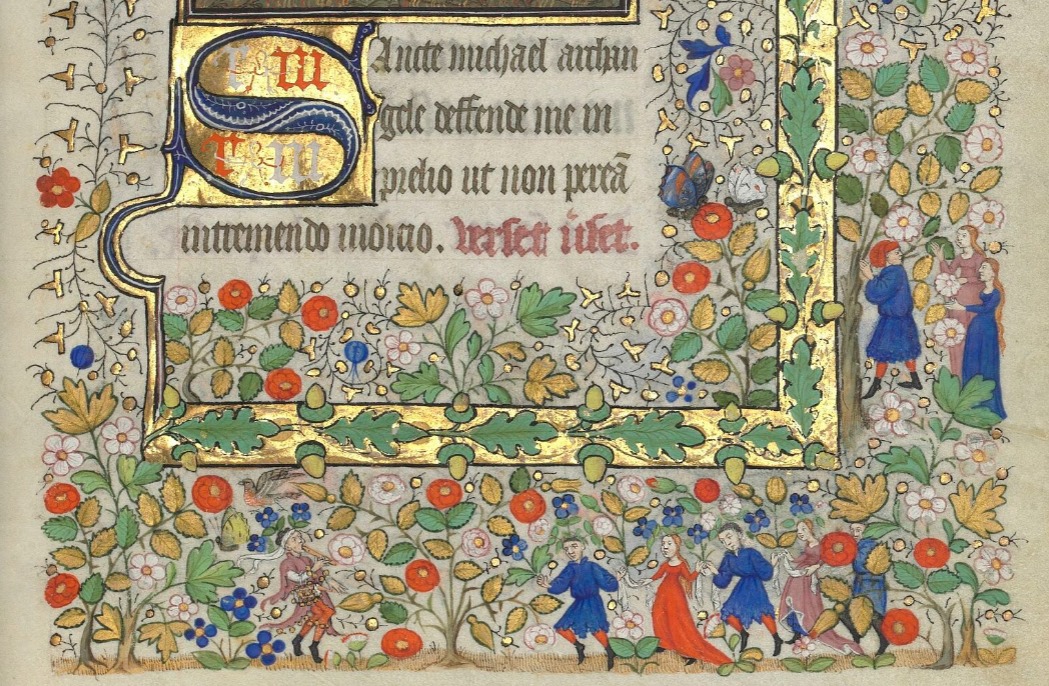 SAncte michael archan
gele deffende me in
prelio ut non pereā
intremendo iudicio. verset